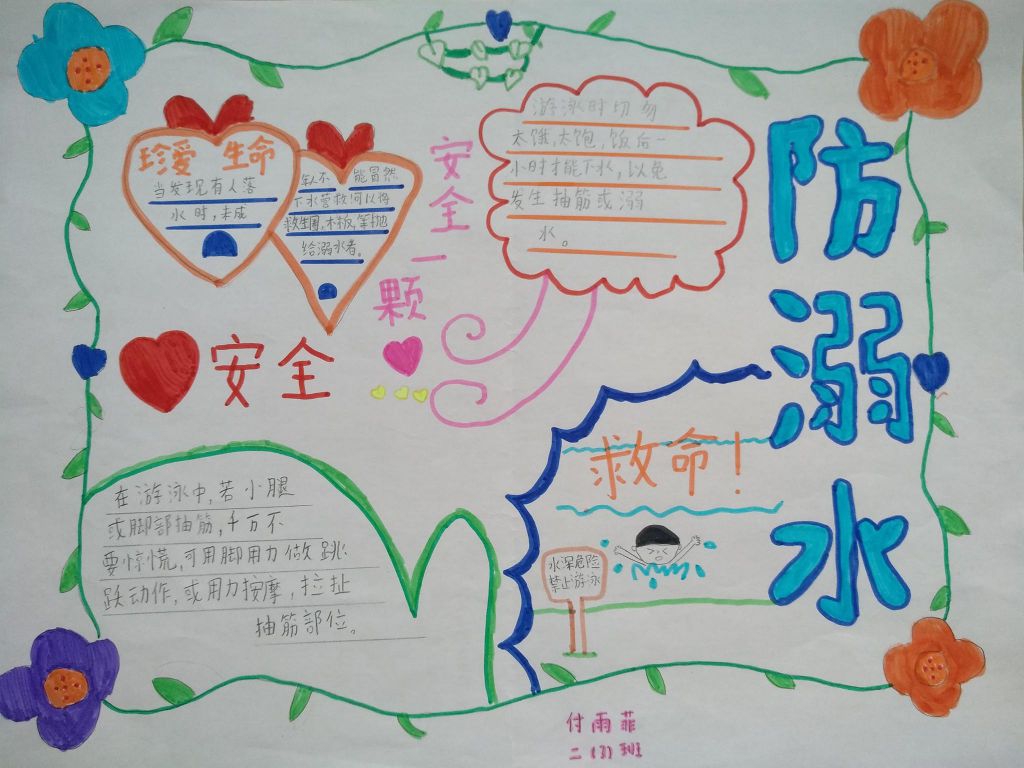 防溺水
珍爱 生命
当发现有人落
水时,未成
年人不 能冒然
下水营救可以将
救生圈,木板,等抛
给溺水者。
安全
一
颗
安全
游泳时切勿
太饿,太饱,饭后一
小时才能下水,以免
发生抽筋或溺
水。
在游泳中,若小腿
或脚部抽筋,千万不
要惊慌,可用脚用力做跳
跃动作,或用力按摩,拉扯
抽筋部位。
救命!
水深危险
禁止游泳
付雨菲